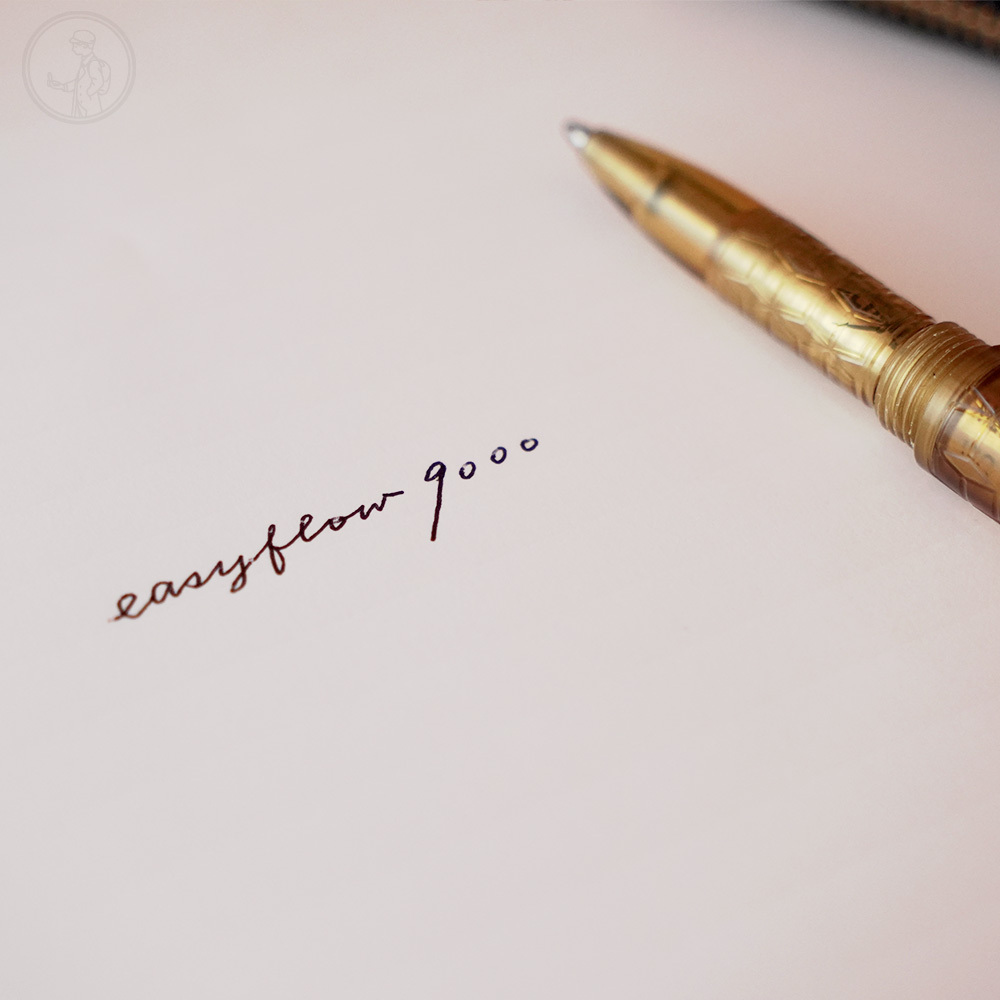 easyflow 9000